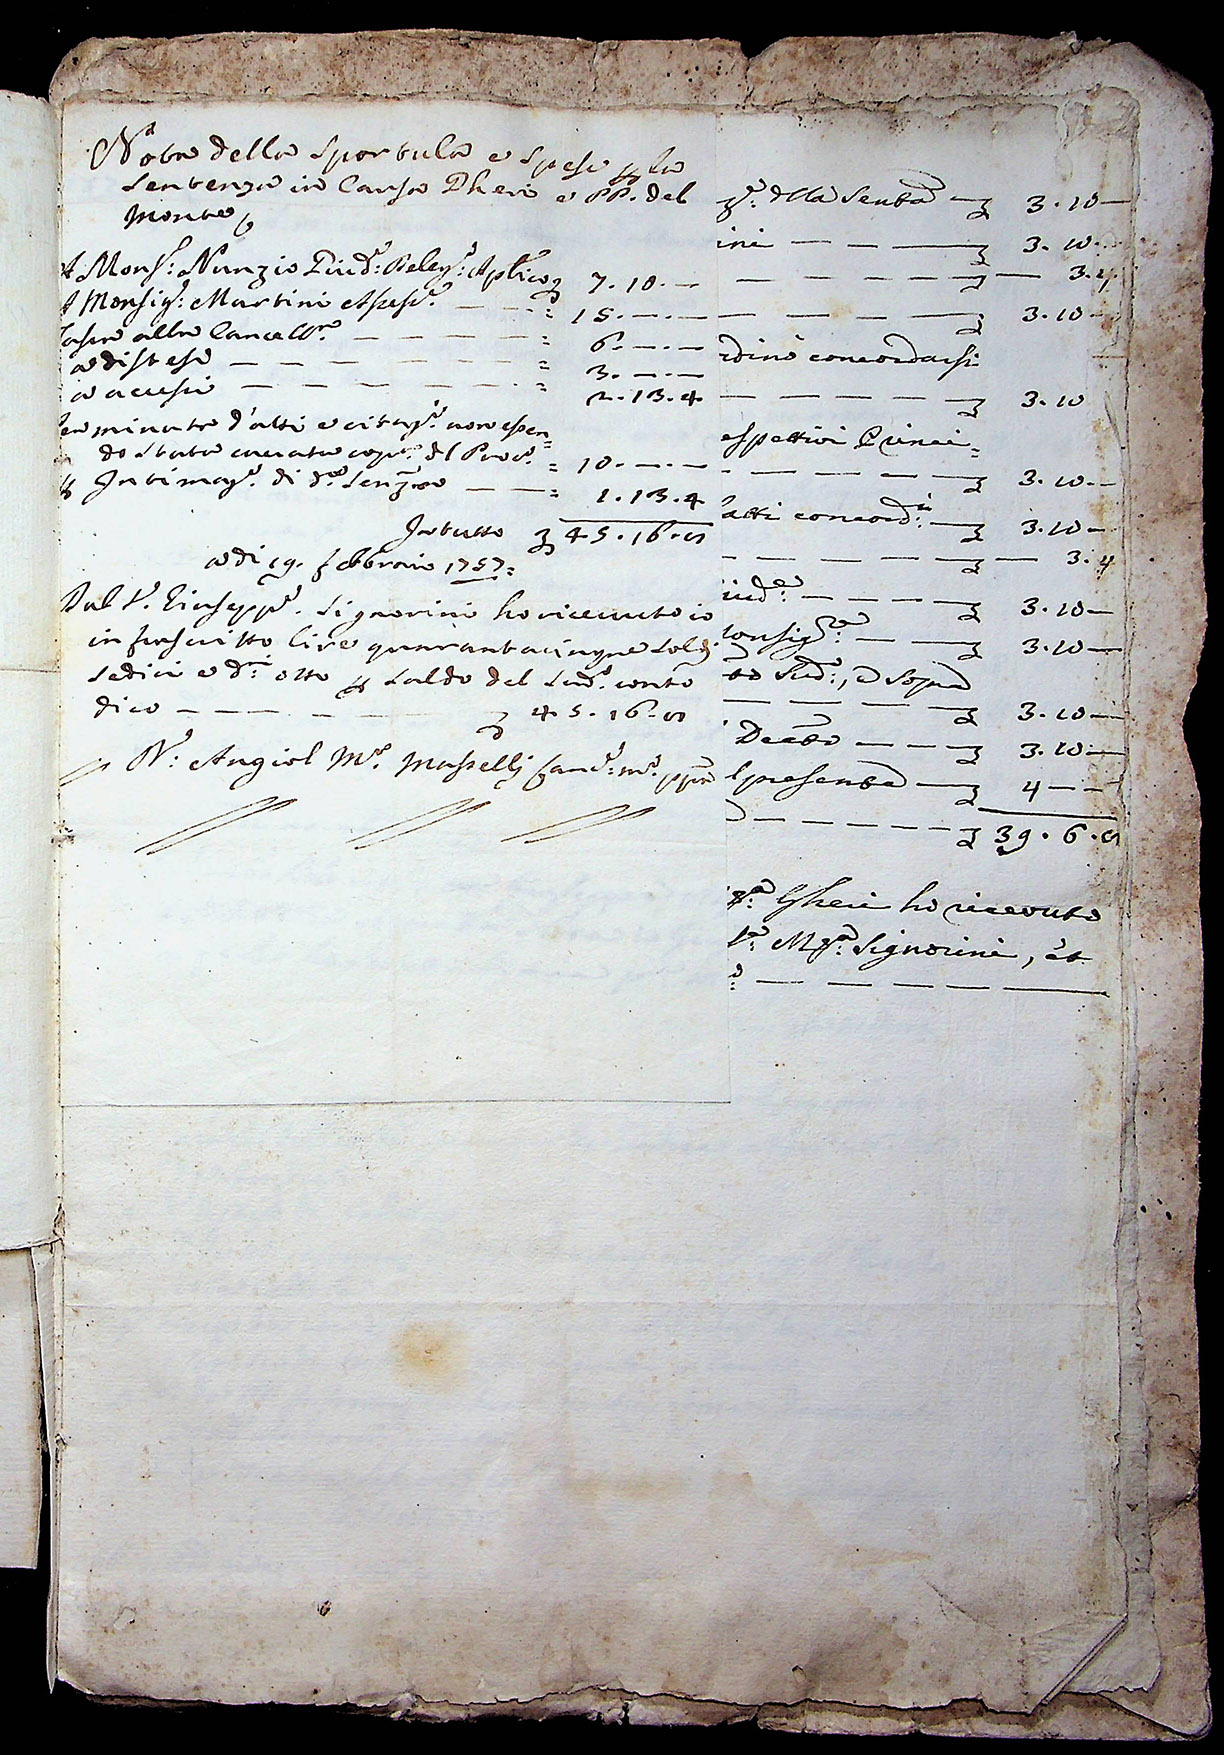 Nota della Sportula e Spese p la
Sentenza in Causa Gheri e PP. del
Monte
A Mons.r: Nunzio Giud.e: Deleg.o: Ap.lico 7.10.—
A Monsig.r: Martini Assess.e — — = 15.—.—
alla Cancell.ria — — — = 6.—.—
a distese — — — — = 3.—.—
a accessi — — — — = 2.13.4
minute d'atti e citaz.i non essen=
do state
del Proc.e = 10.—.—
p Intimaz.e di d.a Senza — — = 1.13.4
In tutto 45.16.8
a di 19. febbraio 1757=
Dal S.r Giusepp.e Signorini ho ricevuto io
infrascritto lire quarantacinque soldi
sedici e d.ri otto p saldo del Sud.o conto
dico — — — — 45.16.8
N: Angiol M.a Masselli Canc.e: m.o pp.a
z.e: d'lla Sent.a — 3.10—
ini — — — 3.10—
— — — — 3.4
— — — — 3.10—
rdine concordarsi
— — — — 3.10
espettivi Princi=
— — — — 3.10—
fatti concord.i: — 3.10—
— — — — 3.4
iud.e — — — 3.10—
onsig.re: — — 3.10—
to Sud.o:, e sopra
— — — — 3.10—
Decto — — — 3.10—
l presente — — 4——
— — — — 39.6.8
Gheri ho ricevuto
Sig.re Signorini, et
— — — — —